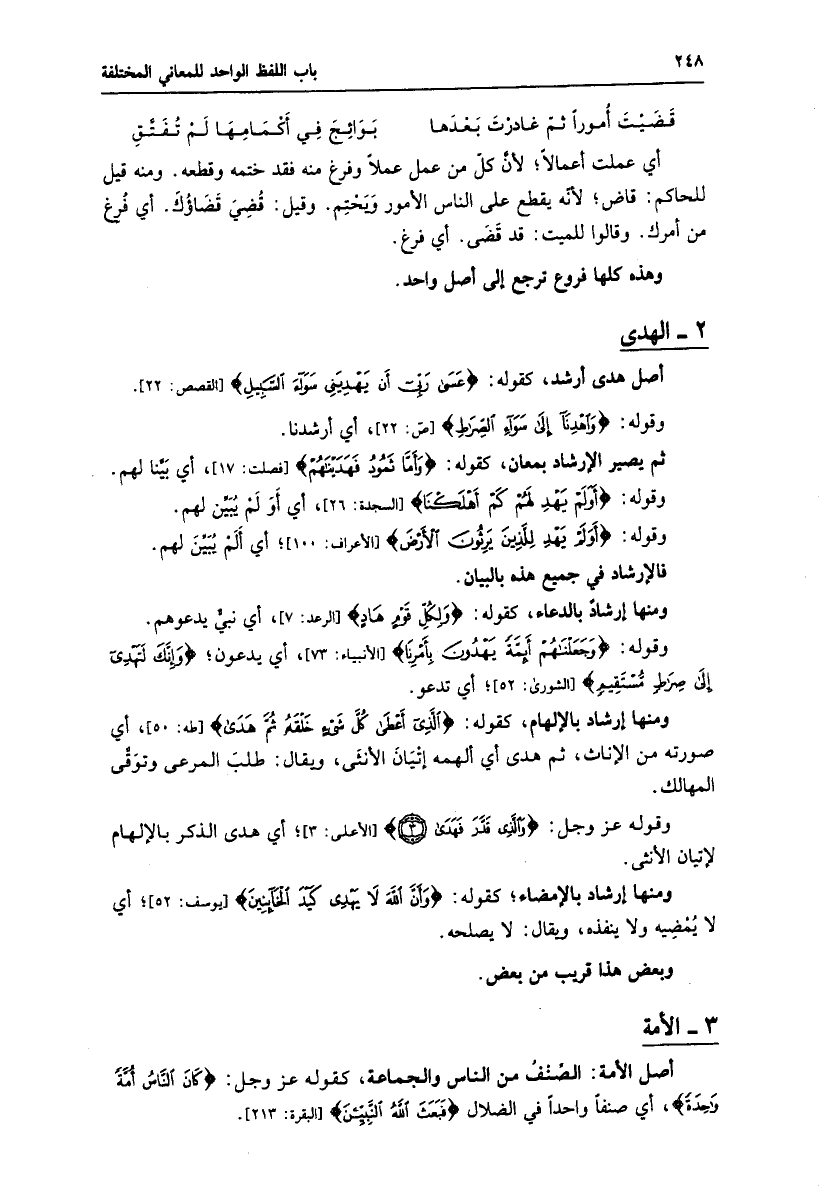 ٢٤٨
باب اللفظ الواحد للمعاني المختلفة
قَضَيْتَ أُموراً ثمّ غادرْتَ بَعْدَها بَوَائِجَ فِي أَكْمَامِهَا لَمْ تُفَتَّقِ
أي عملت أعمالاً؛ لأنَّ كلّ من عمل عملاً وفرغ منه فقد ختمه وقطعه. ومنه قيل
للحاكم: قاض؛ لأنّه يقطع على الناس الأمور وَيَحْتِم. وقيل: قُضِيَ قَضَاؤُكَ. أي فُرِغ
من أمرك. وقالوا للميت: قد قَضَى. أي فرغ.
وهذه كلها فروع ترجع إلى أصل واحد.
٢ ـ الهدى
أصل هدى أرشد، كقوله: ﴿عَسَىٰ رَبِّىٓ أَن يَهْدِيَنِى سَوَآءَ ٱلسَّبِيلِ﴾ [القصص: ٢٢].
وقوله: ﴿وَٱهْدِنَآ إِلَىٰ سَوَآءِ ٱلصِّرَٰطِ﴾ [صّ: ٢٢]، أي أرشدنا.
ثم يصير الإرشاد بمعان، كقوله: ﴿وَأَمَّا ثَمُودُ فَهَدَيْنَٰهُمْ﴾ [فصلت: ١٧]، أي بَيَّنا لهم.
وقوله: ﴿أَوَلَمْ يَهْدِ لَهُمْ كَمْ أَهْلَكْنَا﴾ [السجدة: ٢٦]، أي أَوَ لَمْ يُبَيِّن لهم.
وقوله: ﴿أَوَلَمْ يَهْدِ لِلَّذِينَ يَرِثُونَ ٱلْأَرْضَ﴾ [الأعراف: ١٠٠]؛ أي أَلَمْ يُبَيِّنَ لهم.
فالإرشاد في جميع هذه بالبيان.
ومنها إرشادٌ بالدعاء، كقوله: ﴿وَلِكُلِّ قَوْمٍ هَادٍ﴾ [الرعد: ٧]، أي نبيٌّ يدعوهم.
وقوله: ﴿وَجَعَلْنَٰهُمْ أَئِمَّةً يَهْدُونَ بِأَمْرِنَا﴾ [الأنبياء: ٧٣]، أي يدعون؛ ﴿وَإِنَّكَ لَتَهْدِىٓ
إِلَىٰ صِرَٰطٍ مُّسْتَقِيمٍ﴾ [الشورىٰ: ٥٢]؛ أي تدعو.
ومنها إرشاد بالإلهام، كقوله: ﴿ٱلَّذِىٓ أَعْطَىٰ كُلَّ شَىْءٍ خَلْقَهُۥ ثُمَّ هَدَىٰ﴾ [طه: ٥٠]، أي
صورته من الإناث، ثم هدى أي ألهمه إتْيَانَ الأنثَى، ويقال: طلبَ المرعى وتوَقّى
المهالك.
وقوله عز وجل: ﴿وَٱلَّذِى قَدَّرَ فَهَدَىٰ ٣﴾ [الأعلى: ٣]؛ أي هدى الذكر بالإلهام
لإتيان الأنثى.
ومنها إرشاد بالإمضاء؛ كقوله: ﴿وَأَنَّ ٱللَّهَ لَا يَهْدِى كَيْدَ ٱلْخَآئِنِينَ﴾ [يوسف: ٥٢]؛ أي
لا يُمْضِيه ولا ينفذه، ويقال: لا يصلحه.
وبعض هذا قريب من بعض.
٣ ـ الأمة
أصل الأمة: الصِّنْفُ من الناس والجماعة، كقوله عز وجل: ﴿كَانَ ٱلنَّاسُ أُمَّةً
وَٰحِدَةً﴾، أي صنفاً واحداً في الضلال ﴿فَبَعَثَ ٱللَّهُ ٱلنَّبِيِّـۧنَ﴾ [البقرة: ٢١٣].